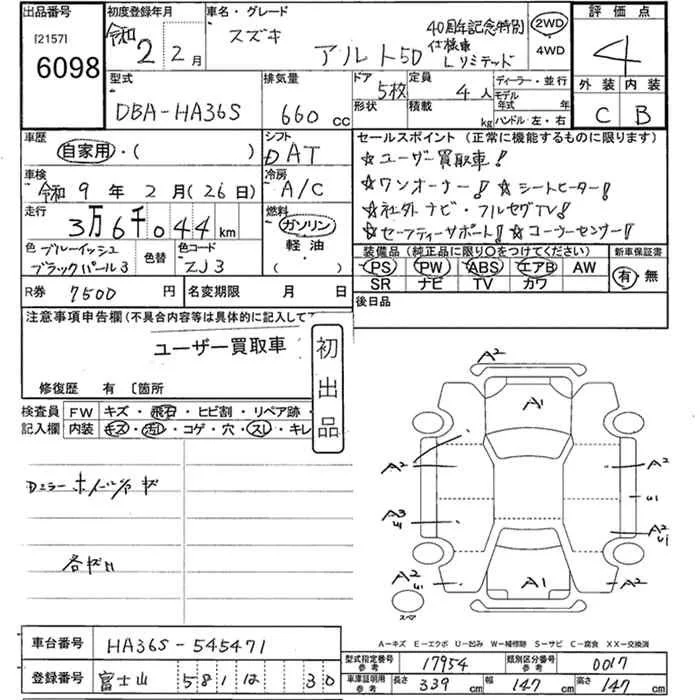 出品番号
[2157]
6098
初度登録年月
令和 2 2月
車名・グレード
スズキ
アルト5D
40周年記念特別
仕様車
Lリミテッド
2WD
4WD
評価点
4
外装 内装
C B
型式
DBA-HA36S
排気量
660 cc
ドア
5枚
定員
4人
形状
積載
kg
ディーラー・並行
モデル年式 年式
ハンドル 左・右
車歴
自家用・( )
シフト
DAT
車検
令和 9年 2月(26日)
冷房
A/C
走行
3万6千044km
燃料
ガソリン
軽油
( )
色
ブルーイッシュ
ブラックパール3
色替
色コード
ZJ3
R券 7500 円
名変期限 月 日
セールスポイント (正常に機能するものに限ります)
☆ユーザー買取車!
☆ワンオーナー!☆シートヒーター!
☆社外ナビ・フルセグTV!
☆セーフティーサポート!☆コーナーセンサー!
装備品(純正品に限り〇をつけてください)
新車保証書
PS PW ABS エアB AW
SR ナビ TV カワ
有 無
後日品
注意事項申告欄(不具合内容等は具体的に記入して
ユーザー買取車
初出品
修復歴 有 〔箇所
検査員
記入欄
FW キズ・飛石・ヒビ割・リペア跡・
内装 キズ・汚れ・コゲ・穴・スレ・キレ
Dミラー ホイルガ キズ
各キズ
A2
A1
A2
A2
A3
U1
U1
A2
U1
A2
U1
A1
A2
スペア
A-キズ E-エクボ U-凹み W-補修跡 S-サビ C-腐食 XX-交換済
車台番号 HA36S-545471
登録番号 富士山 581 12 30
型式指定番号
参考
17954
類別区分番号
参考
0017
車庫証明用
参考
長さ 339 cm 幅 147 cm 高さ 147 cm